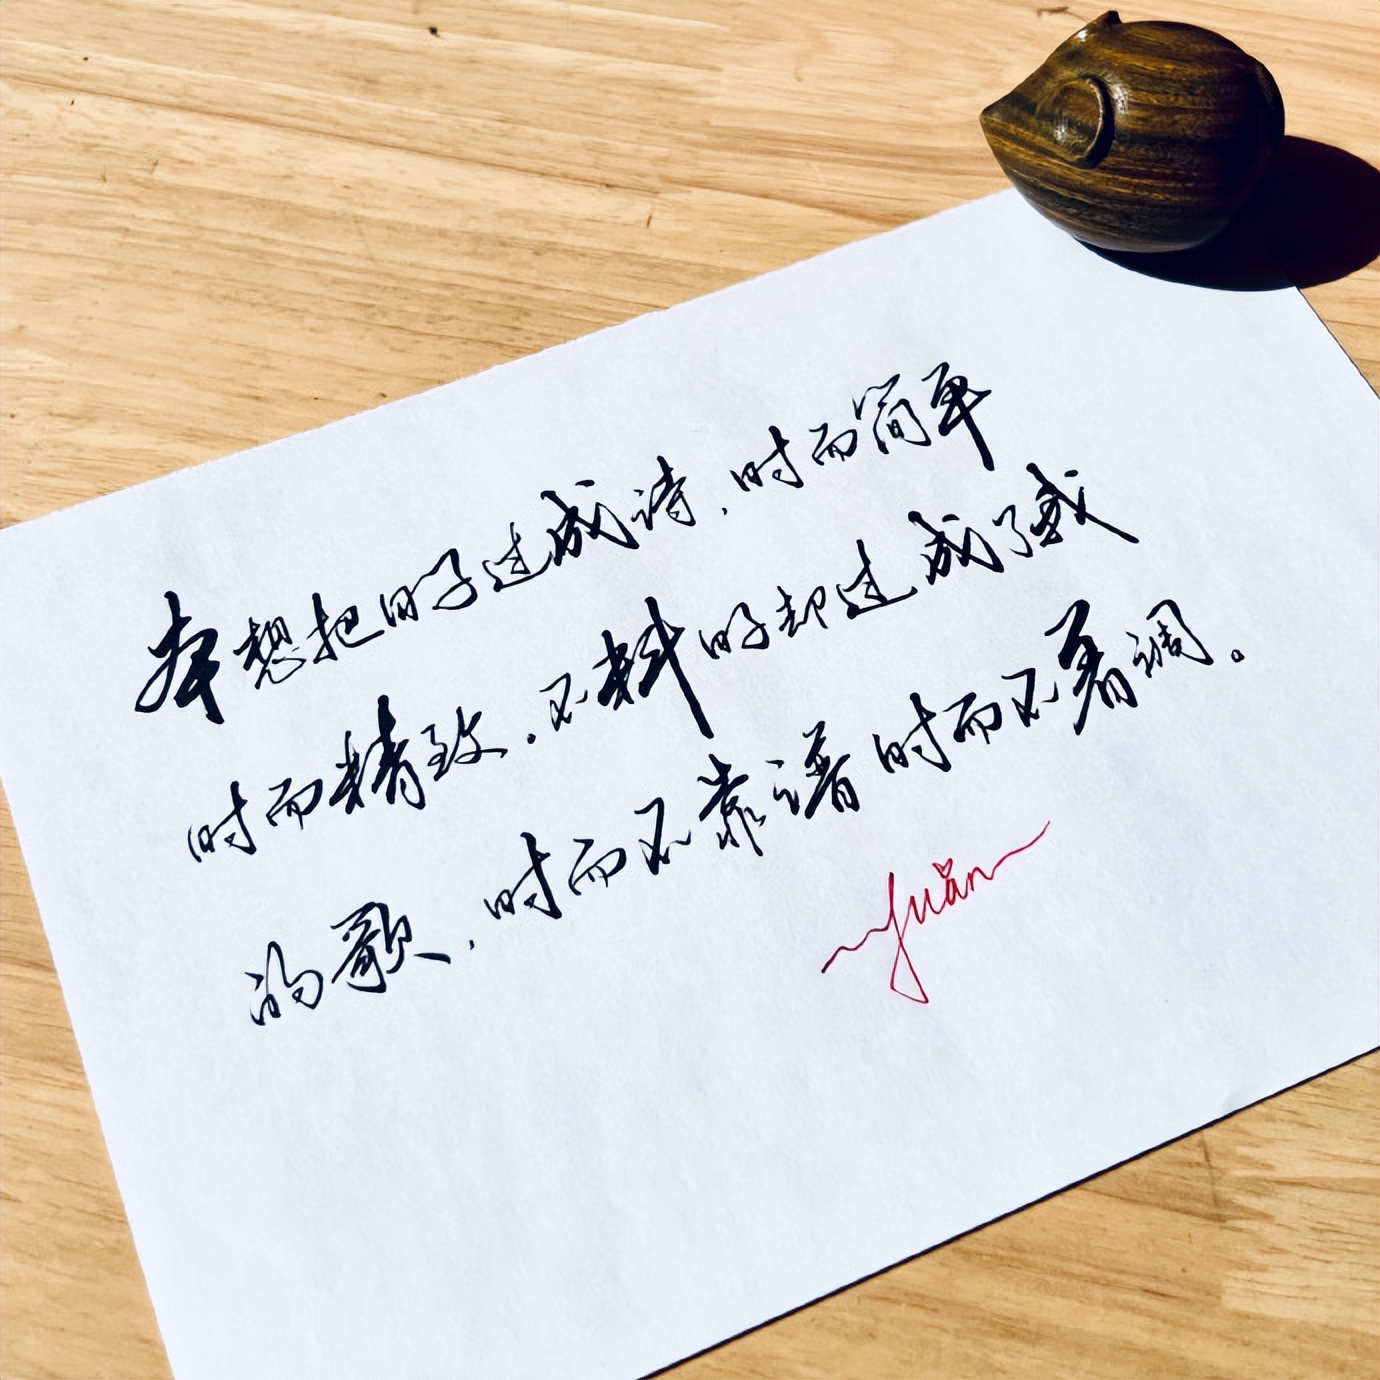 本想把日子过成诗，时而简单
时而精致，不料日子却过成了我
的歌，时而不靠谱时而不着调。
yuan